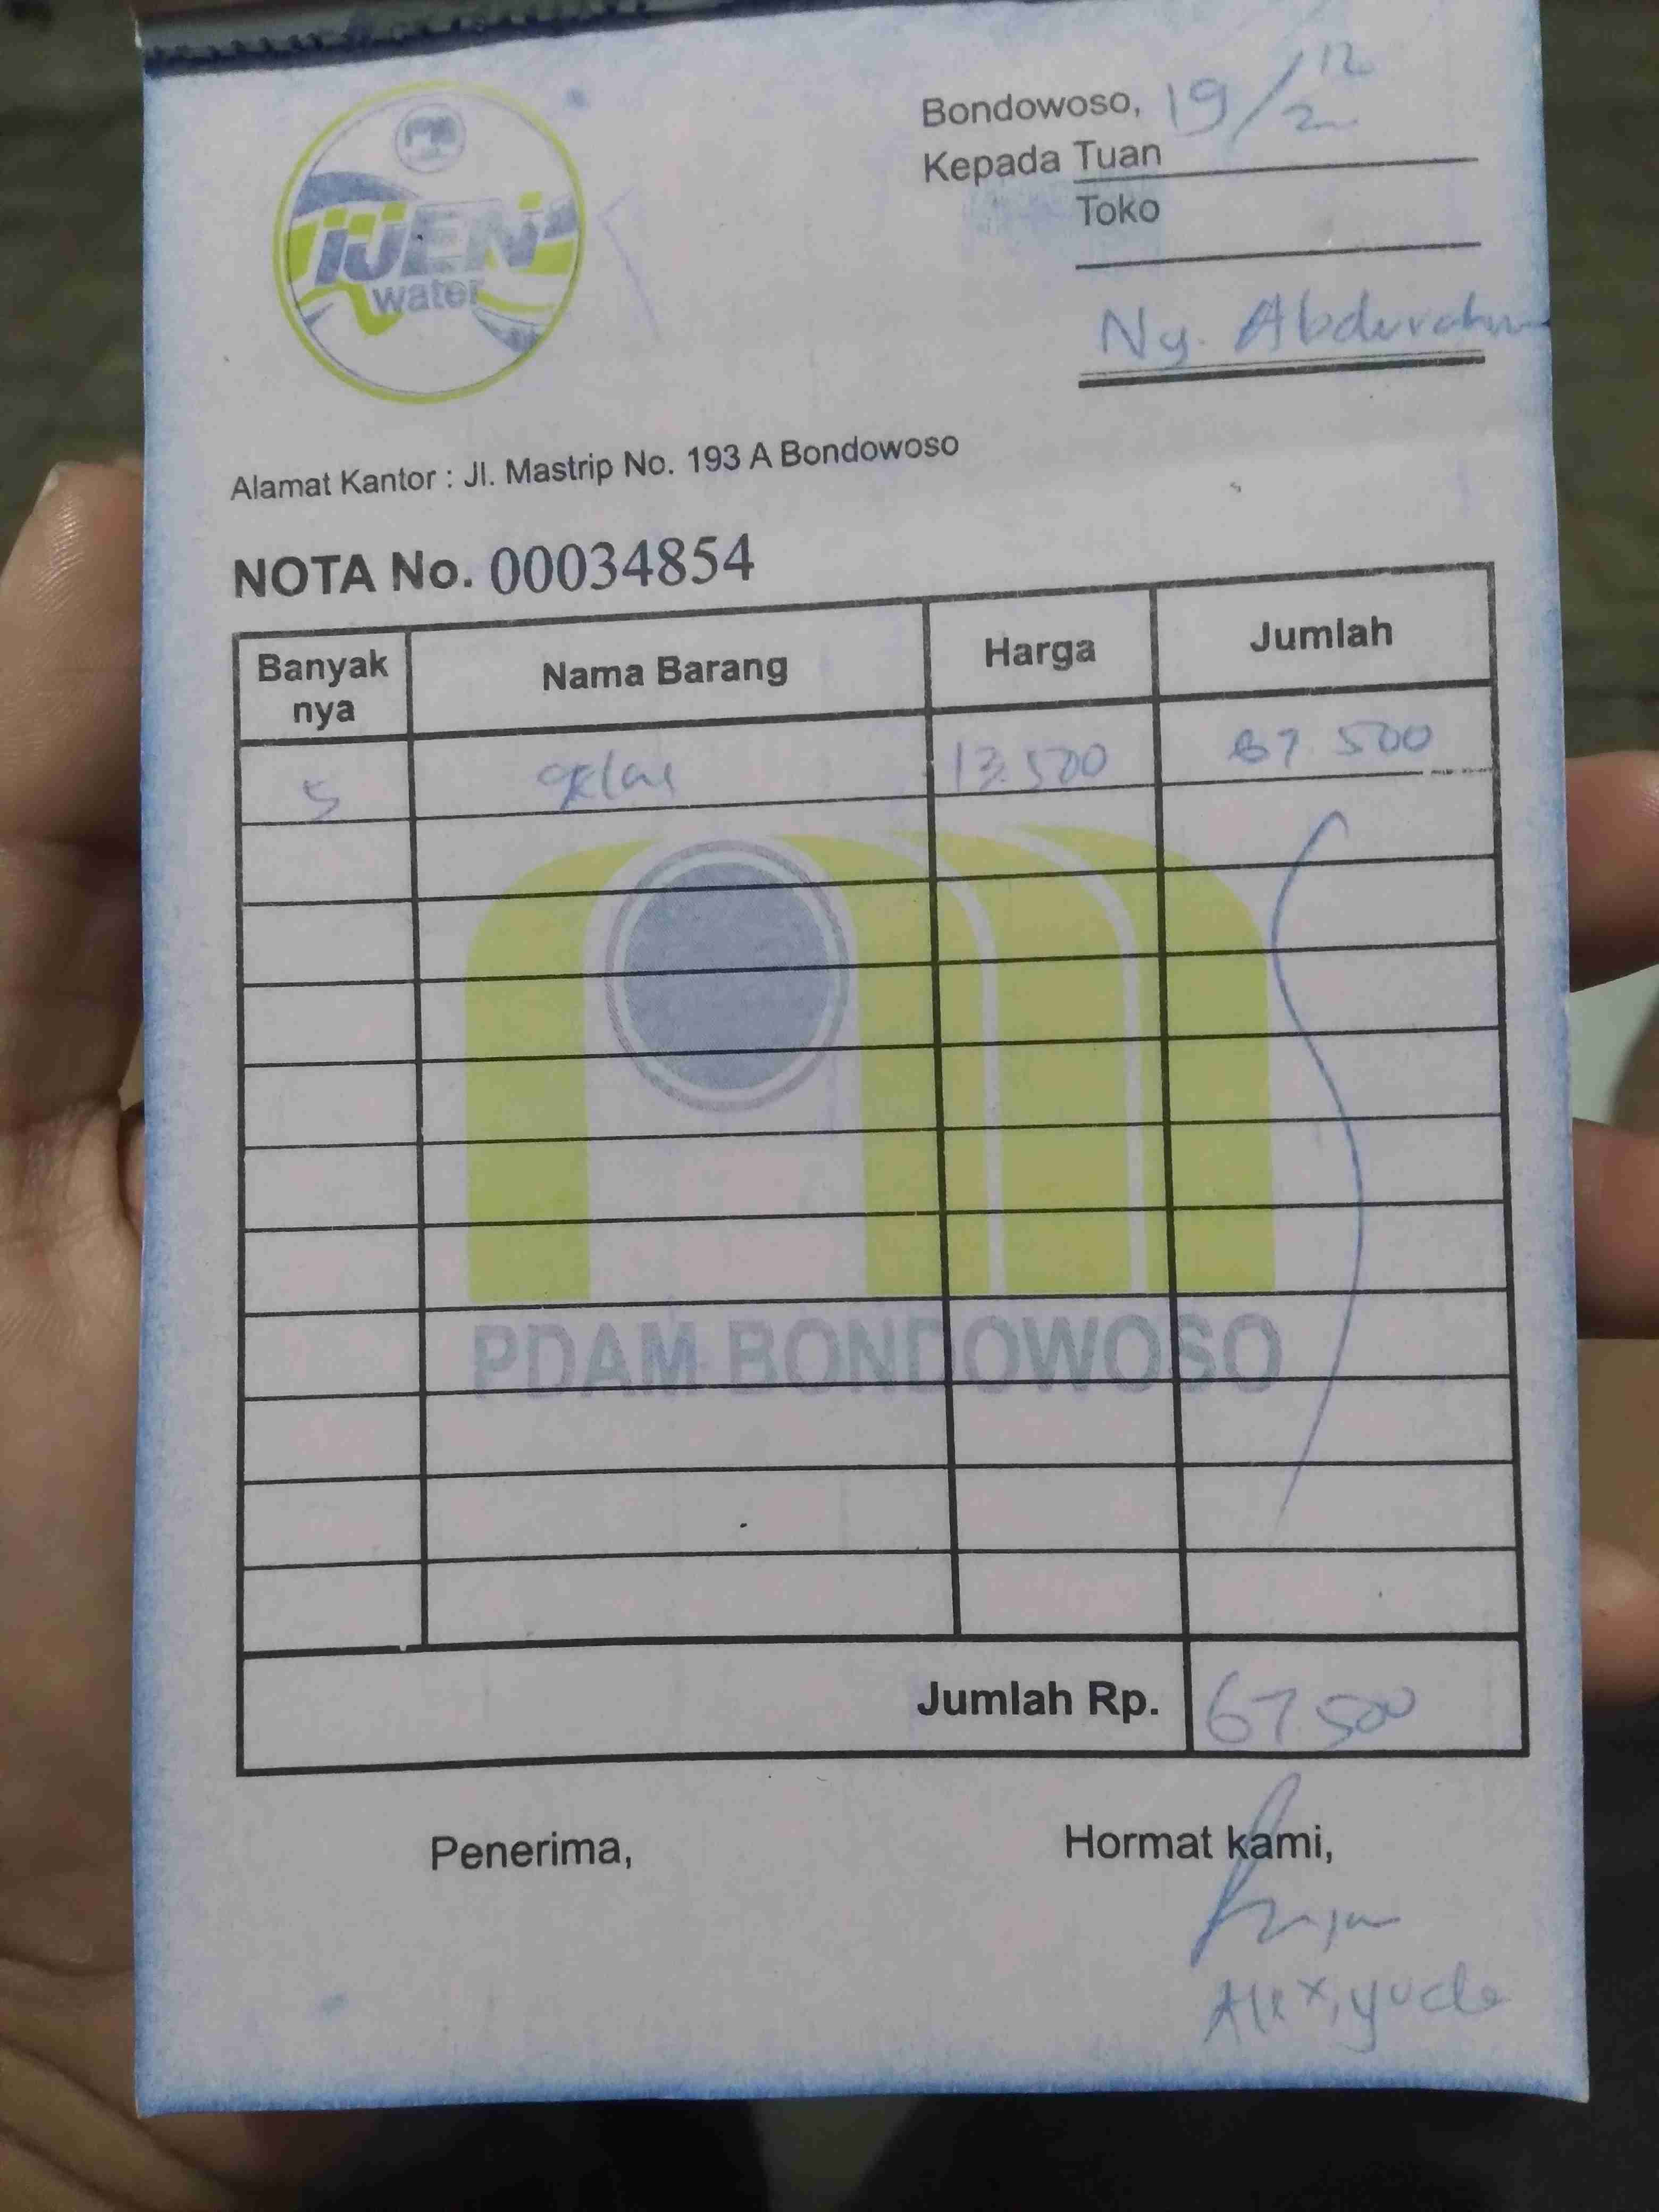 iJEN
water
Bondowoso, 19/12
Kepada Tuan
Toko
Ny. Abdurahm
Alamat Kantor : Jl. Mastrip No. 193 A Bondowoso
NOTA No. 00034854
Banyak nya Nama Barang Harga Jumlah
5 gelas 13.500 67 500
PDAM BONDOWOSO
Jumlah Rp. 67 500
Penerima, Hormat kami,
Alex, yuda